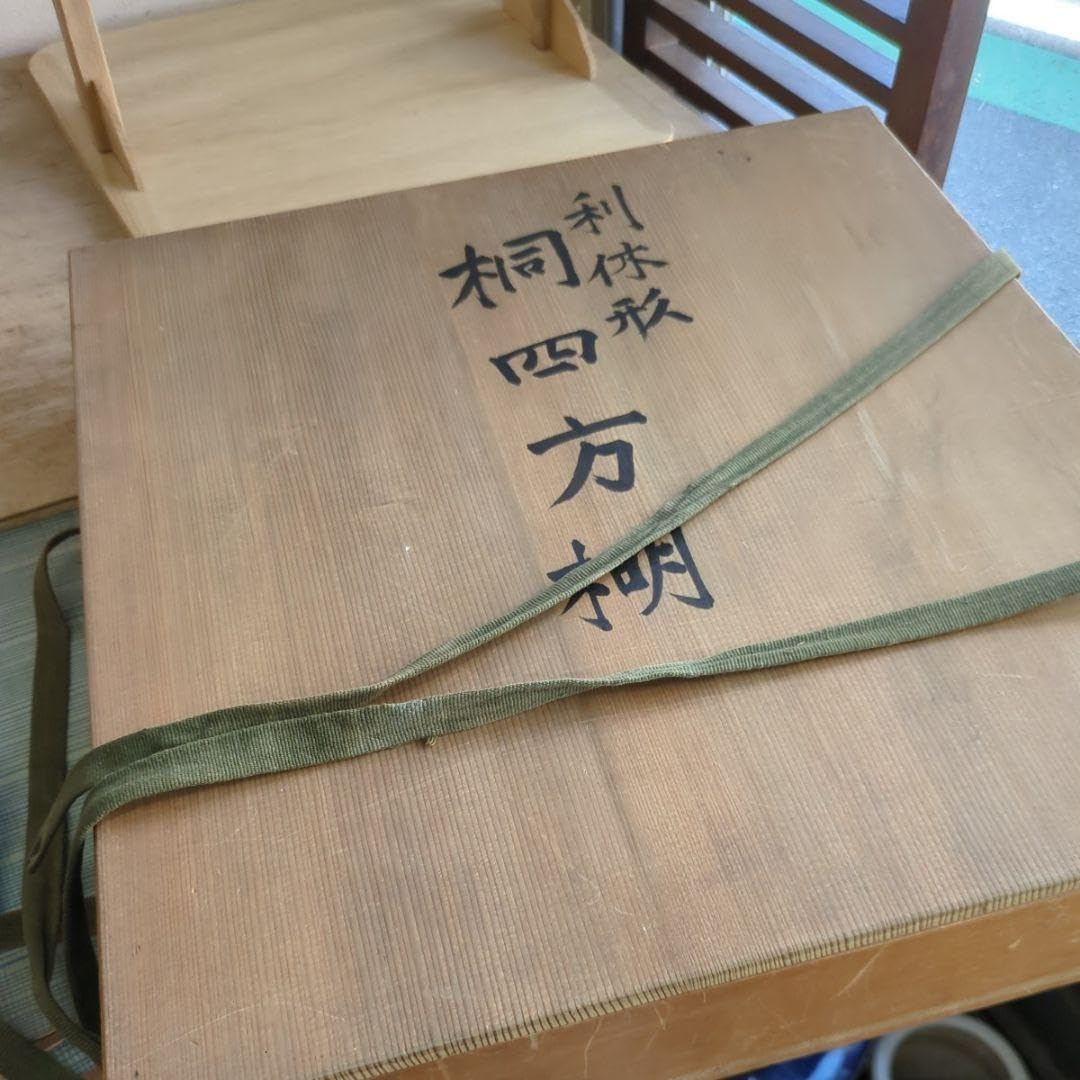 利休形
桐四方棚